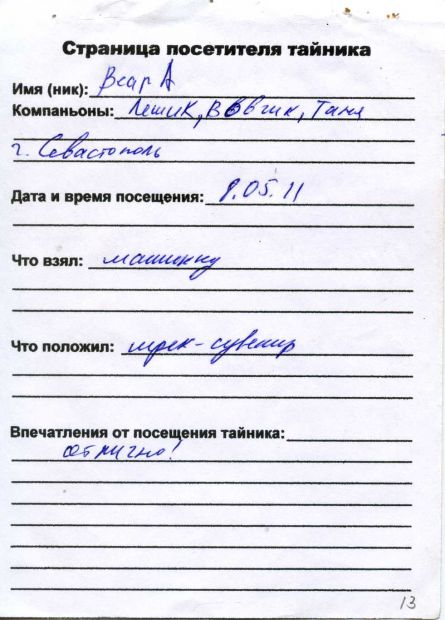 Страница посетителя тайника
Имя (ник):
Компаньоны: Лешик, Вовчик, Таня
г. Севастополь
Дата и время посещения: 8.05.11
Что взял: машинку
Что положил: трек-сувенир
Впечатления от посещения тайника:
отлично!
13